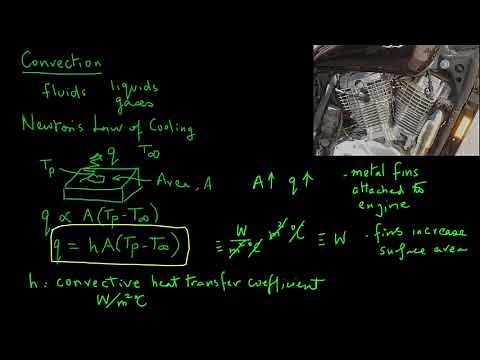 Convection
fluids liquids
gases
Newton's Law of Cooling
q T∞
Tp
Area, A
q ∝ A(Tp-T∞)
q = hA(Tp-T∞)
A↑ q↑
- metal fins
attached to
engine
≡ W/m²°C m² °C ≡ W
- fins increase
surface area
h: convective heat transfer coefficient
W/m²°C